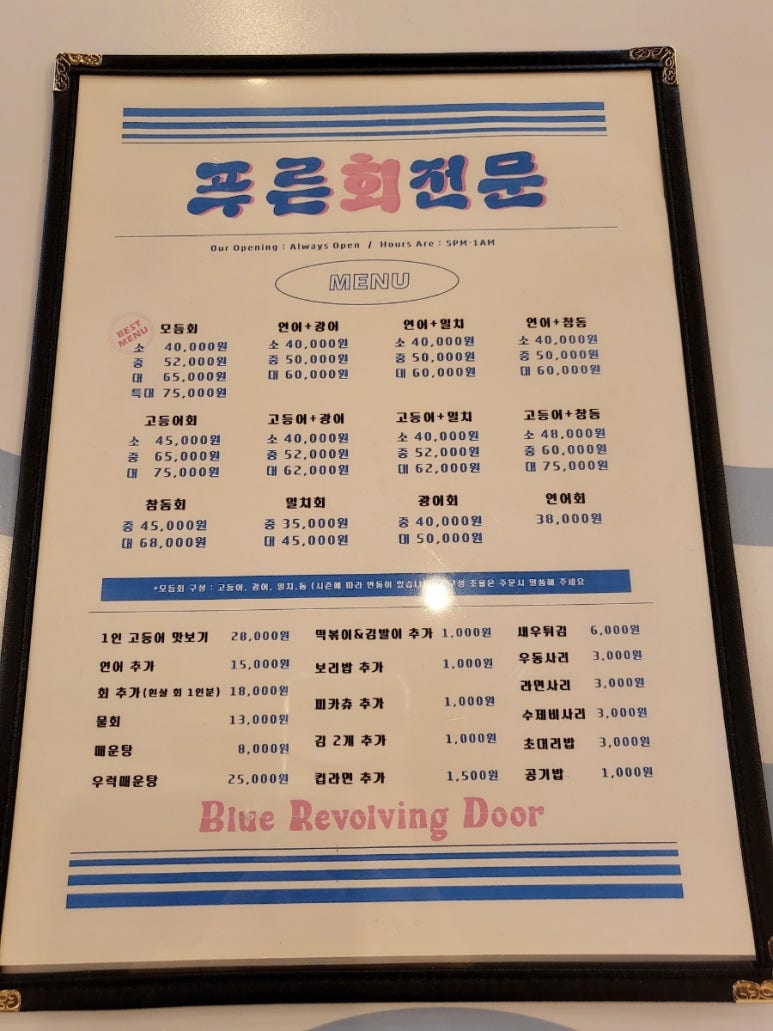 푸른회전문
Our Opening : Always Open / Hours Are : 5PM-1AM
MENU
BEST MENU
모듬회
소 40,000원
중 52,000원
대 65,000원
특대 75,000원
연어+광어
소 40,000원
중 50,000원
대 60,000원
연어+밀치
소 40,000원
중 50,000원
대 60,000원
연어+참돔
소 40,000원
중 50,000원
대 60,000원
고등어회
소 45,000원
중 65,000원
대 75,000원
고등어+광어
소 40,000원
중 52,000원
대 62,000원
고등어+밀치
소 40,000원
중 52,000원
대 62,000원
고등어+참돔
소 48,000원
중 60,000원
대 75,000원
참돔회
중 45,000원
대 68,000원
밀치회
중 35,000원
대 45,000원
광어회
중 40,000원
대 50,000원
연어회
38,000원
*모듬회 구성 : 고등어, 광어, 밀치, 돔 (시즌에 따라 변동이 있습니 구성 조율은 주문시 말씀해 주세요
1인 고등어 맛보기 28,000원
연어 추가 15,000원
회 추가(흰살 회 1인분) 18,000원
물회 13,000원
매운탕 8,000원
우럭매운탕 25,000원
떡볶이&김말이 추가 1,000원
보리밥 추가 1,000원
피카츄 추가 1,000원
김 2개 추가 1,000원
컵라면 추가 1,500원
새우튀김 6,000원
우동사리 3,000원
라면사리 3,000원
수제비사리 3,000원
초대리밥 3,000원
공기밥 1,000원
Blue Revolving Door